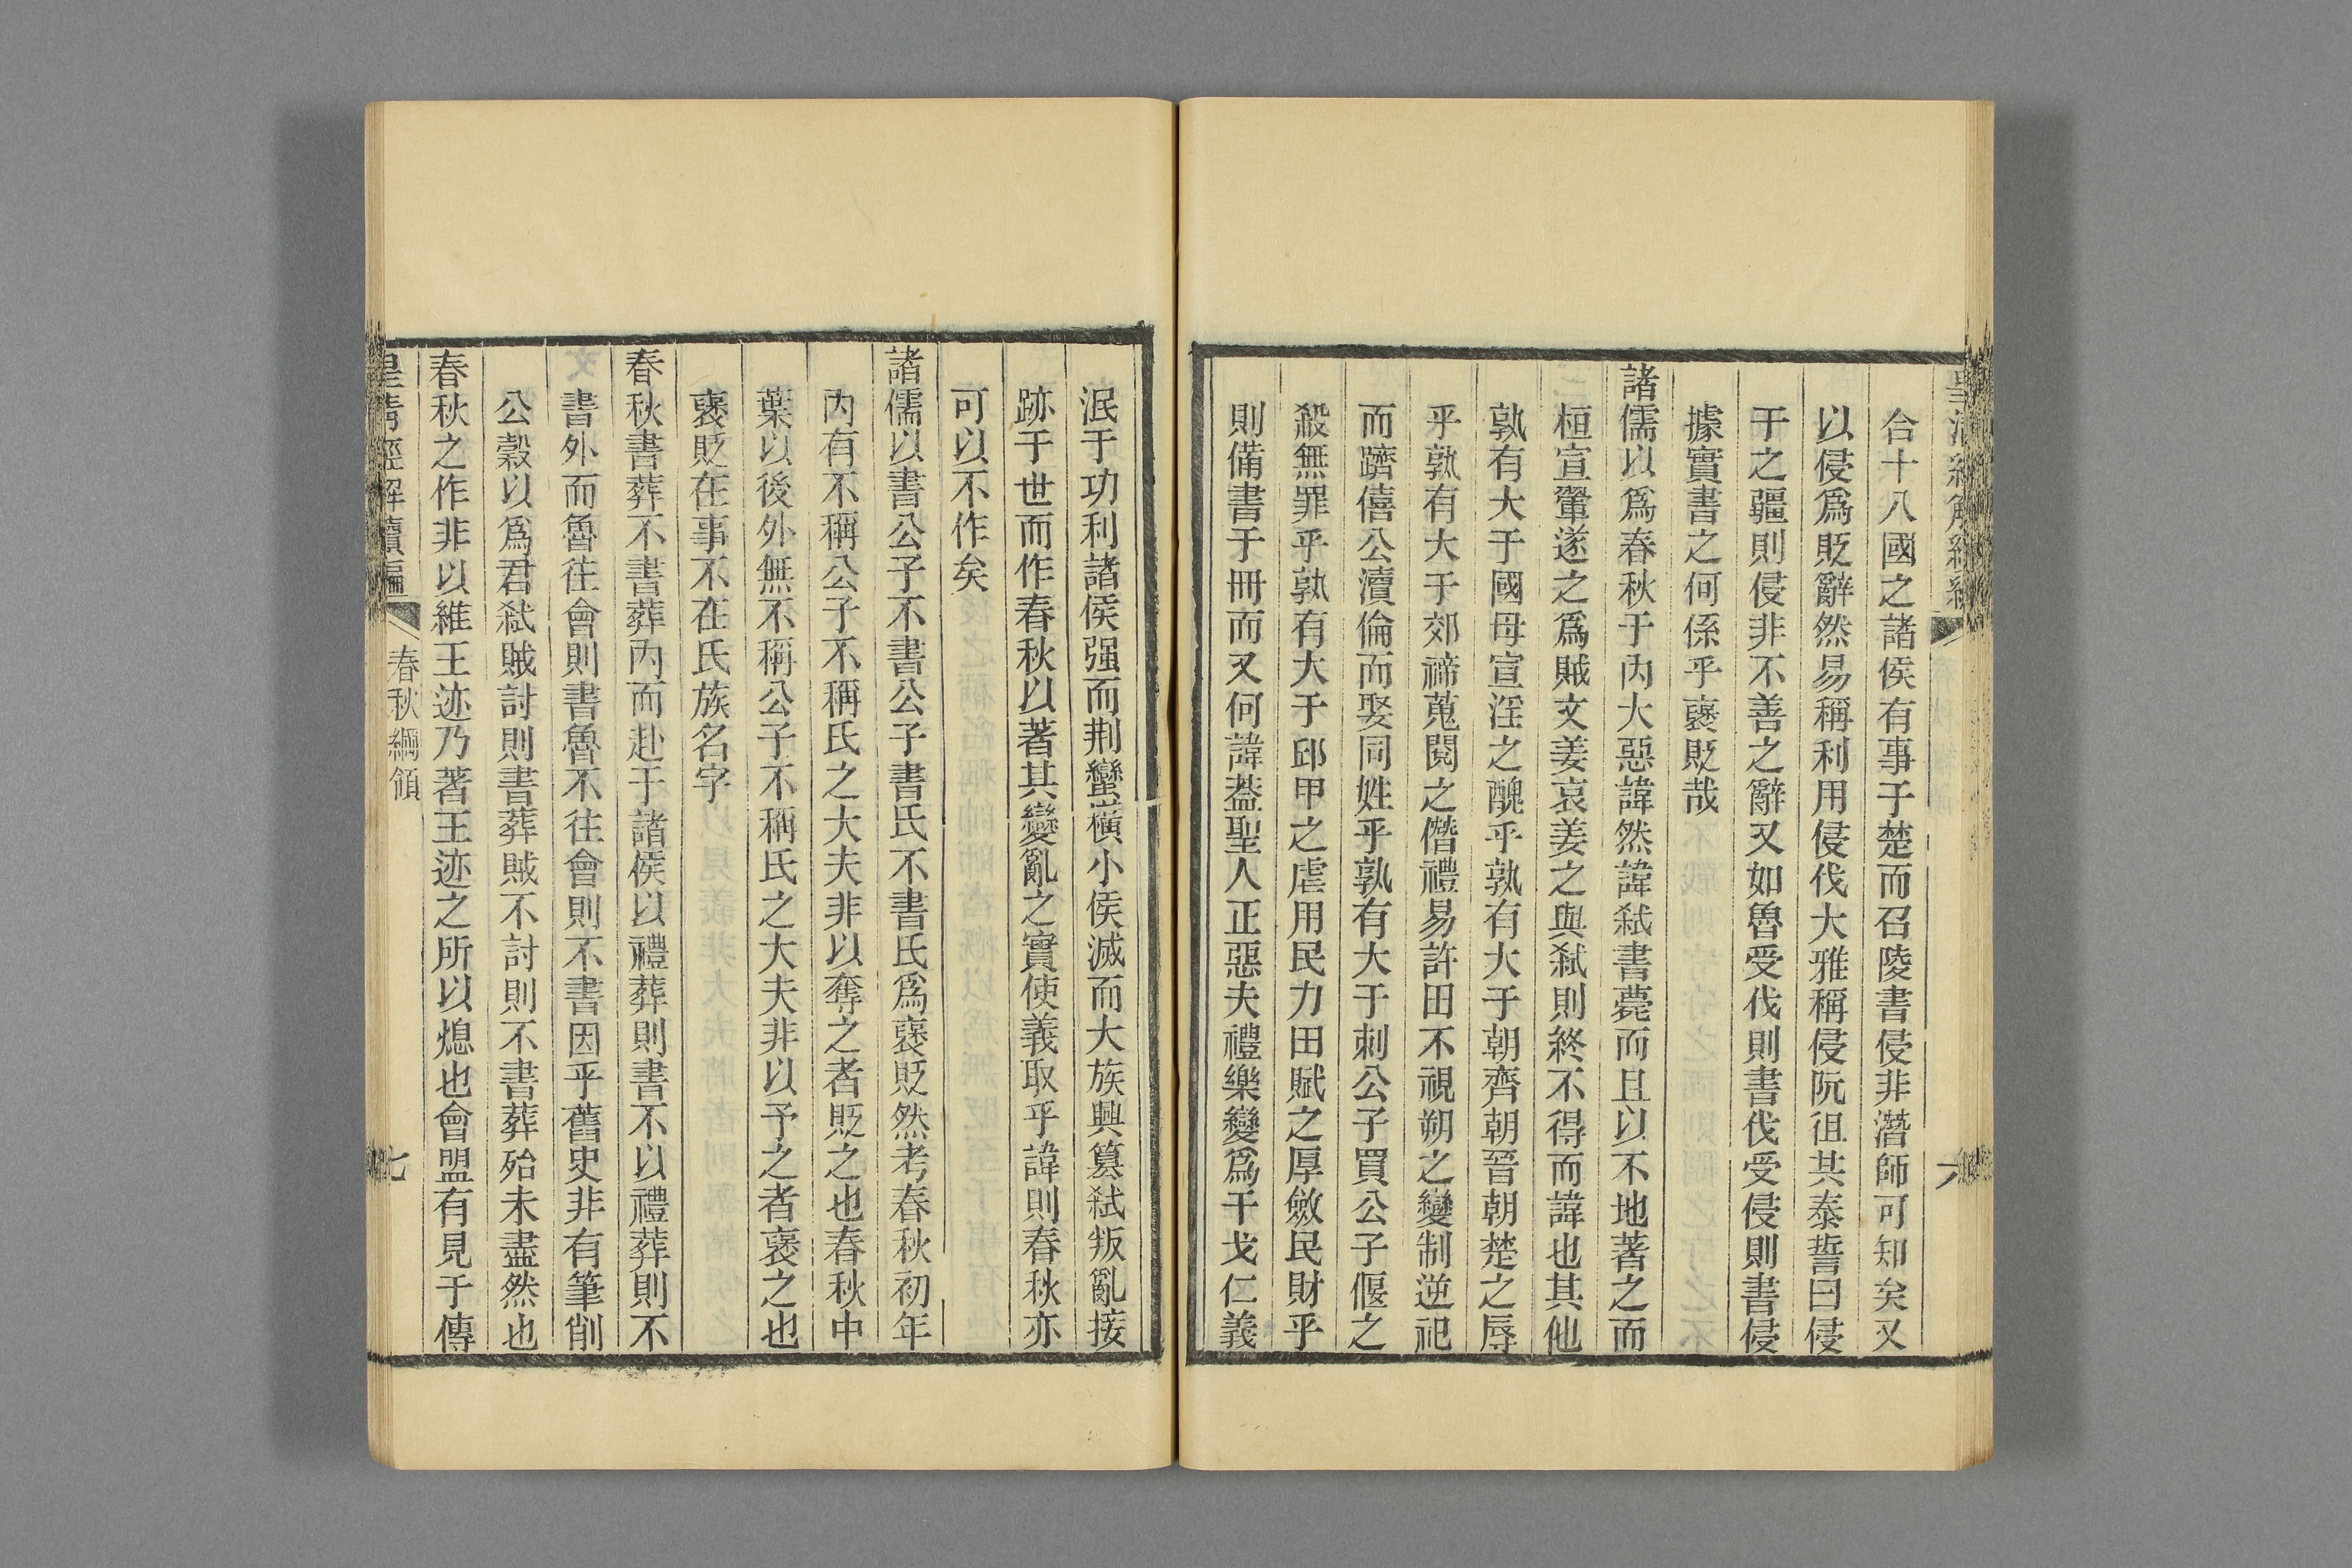 合十八國之諸侯有事于楚而召陵書侵非潛師可知矣又
以侵爲貶辭然易稱利用侵伐大雅稱侵阮徂共泰誓曰侵
于之疆則侵非不善之辭又如魯受伐則書伐受侵則書侵
據實書之何係乎襃貶哉
諸儒以爲春秋于內大惡諱然諱弑書薨而且以不地著之而
桓宣翬遂之爲賊文姜哀姜之與弑則終不得而諱也其他
孰有大于國母宣淫之醜乎孰有大于朝齊朝晉朝楚之辱
乎孰有大于郊禘蒐閱之僭禮易許田不視朔之變制逆祀
而躋僖公瀆倫而娶同姓乎孰有大于刺公子買公子偃之
殺無罪乎孰有大于邱甲之虐用民力田賦之厚斂民財乎
則備書于冊而又何諱葢聖人正惡夫禮樂變爲干戈仁義
六
泯于功利諸侯强而荆蠻橫小侯滅而大族興簒弑叛亂接
跡于世而作春秋以著其變亂之實使義取乎諱則春秋亦
可以不作矣
諸儒以書公子不書公子書氏不書氏爲襃貶然考春秋初年
內有不稱公子不稱氏之大夫非以奪之者貶之也春秋中
葉以後外無不稱公子不稱氏之大夫非以予之者襃之也
襃貶在事不在氏族名字
春秋書葬不書葬內而赴于諸侯以禮葬則書不以禮葬則不
書外而魯往會則書魯不往會則不書因乎舊史非有筆削
公穀以爲君弑賊討則書葬賊不討則不書葬殆未盡然也
春秋之作非以維王迹乃著王迹之所以熄也會盟有見于傳
皇清經解續編
春秋綱領
七